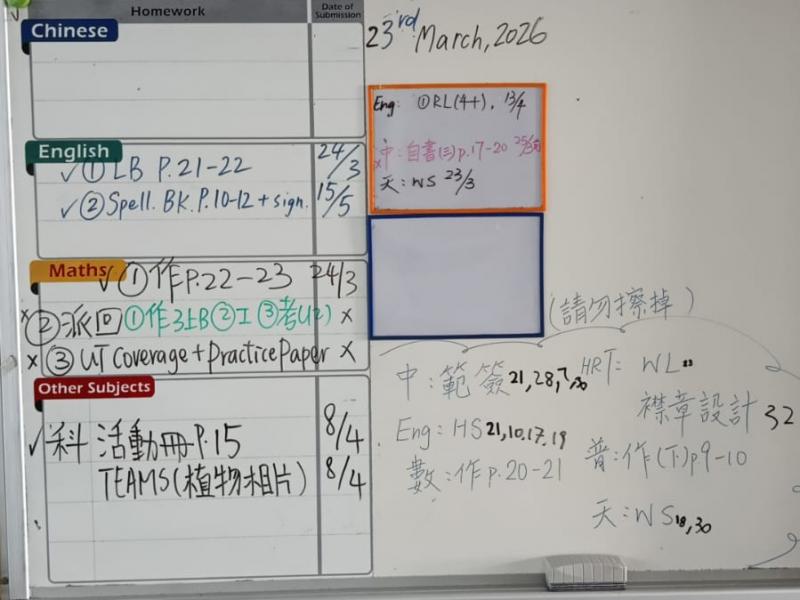 Homework
Date of Submission
23rd March, 2026
Chinese
English
✓ ① LB P.21-22 24/3
✓ ② Spell. BK. P.10-12 + sign. 15/5
Maths
✓ ① 作 P.22-23 24/3
x ② 派回 ①作3上B ②工 ③考(U2) x
x ③ UT Coverage + Practice Paper x
Other Subjects
✓ 科 活動冊 P.15 8/4
TEAMS (植物相片) 8/4
Eng: ① RL(4+), 13/4
x 中: 自書(三) p.17-20 25/3
天: WS 23/3
(請勿擦掉)
中: 範簽 21, 28, 7, 30
HRT: WL
襟章設計 32
Eng: HS 21, 10, 17, 19
數: 作 p.20-21
普: 作(下) p9-10
天: WS 18, 30